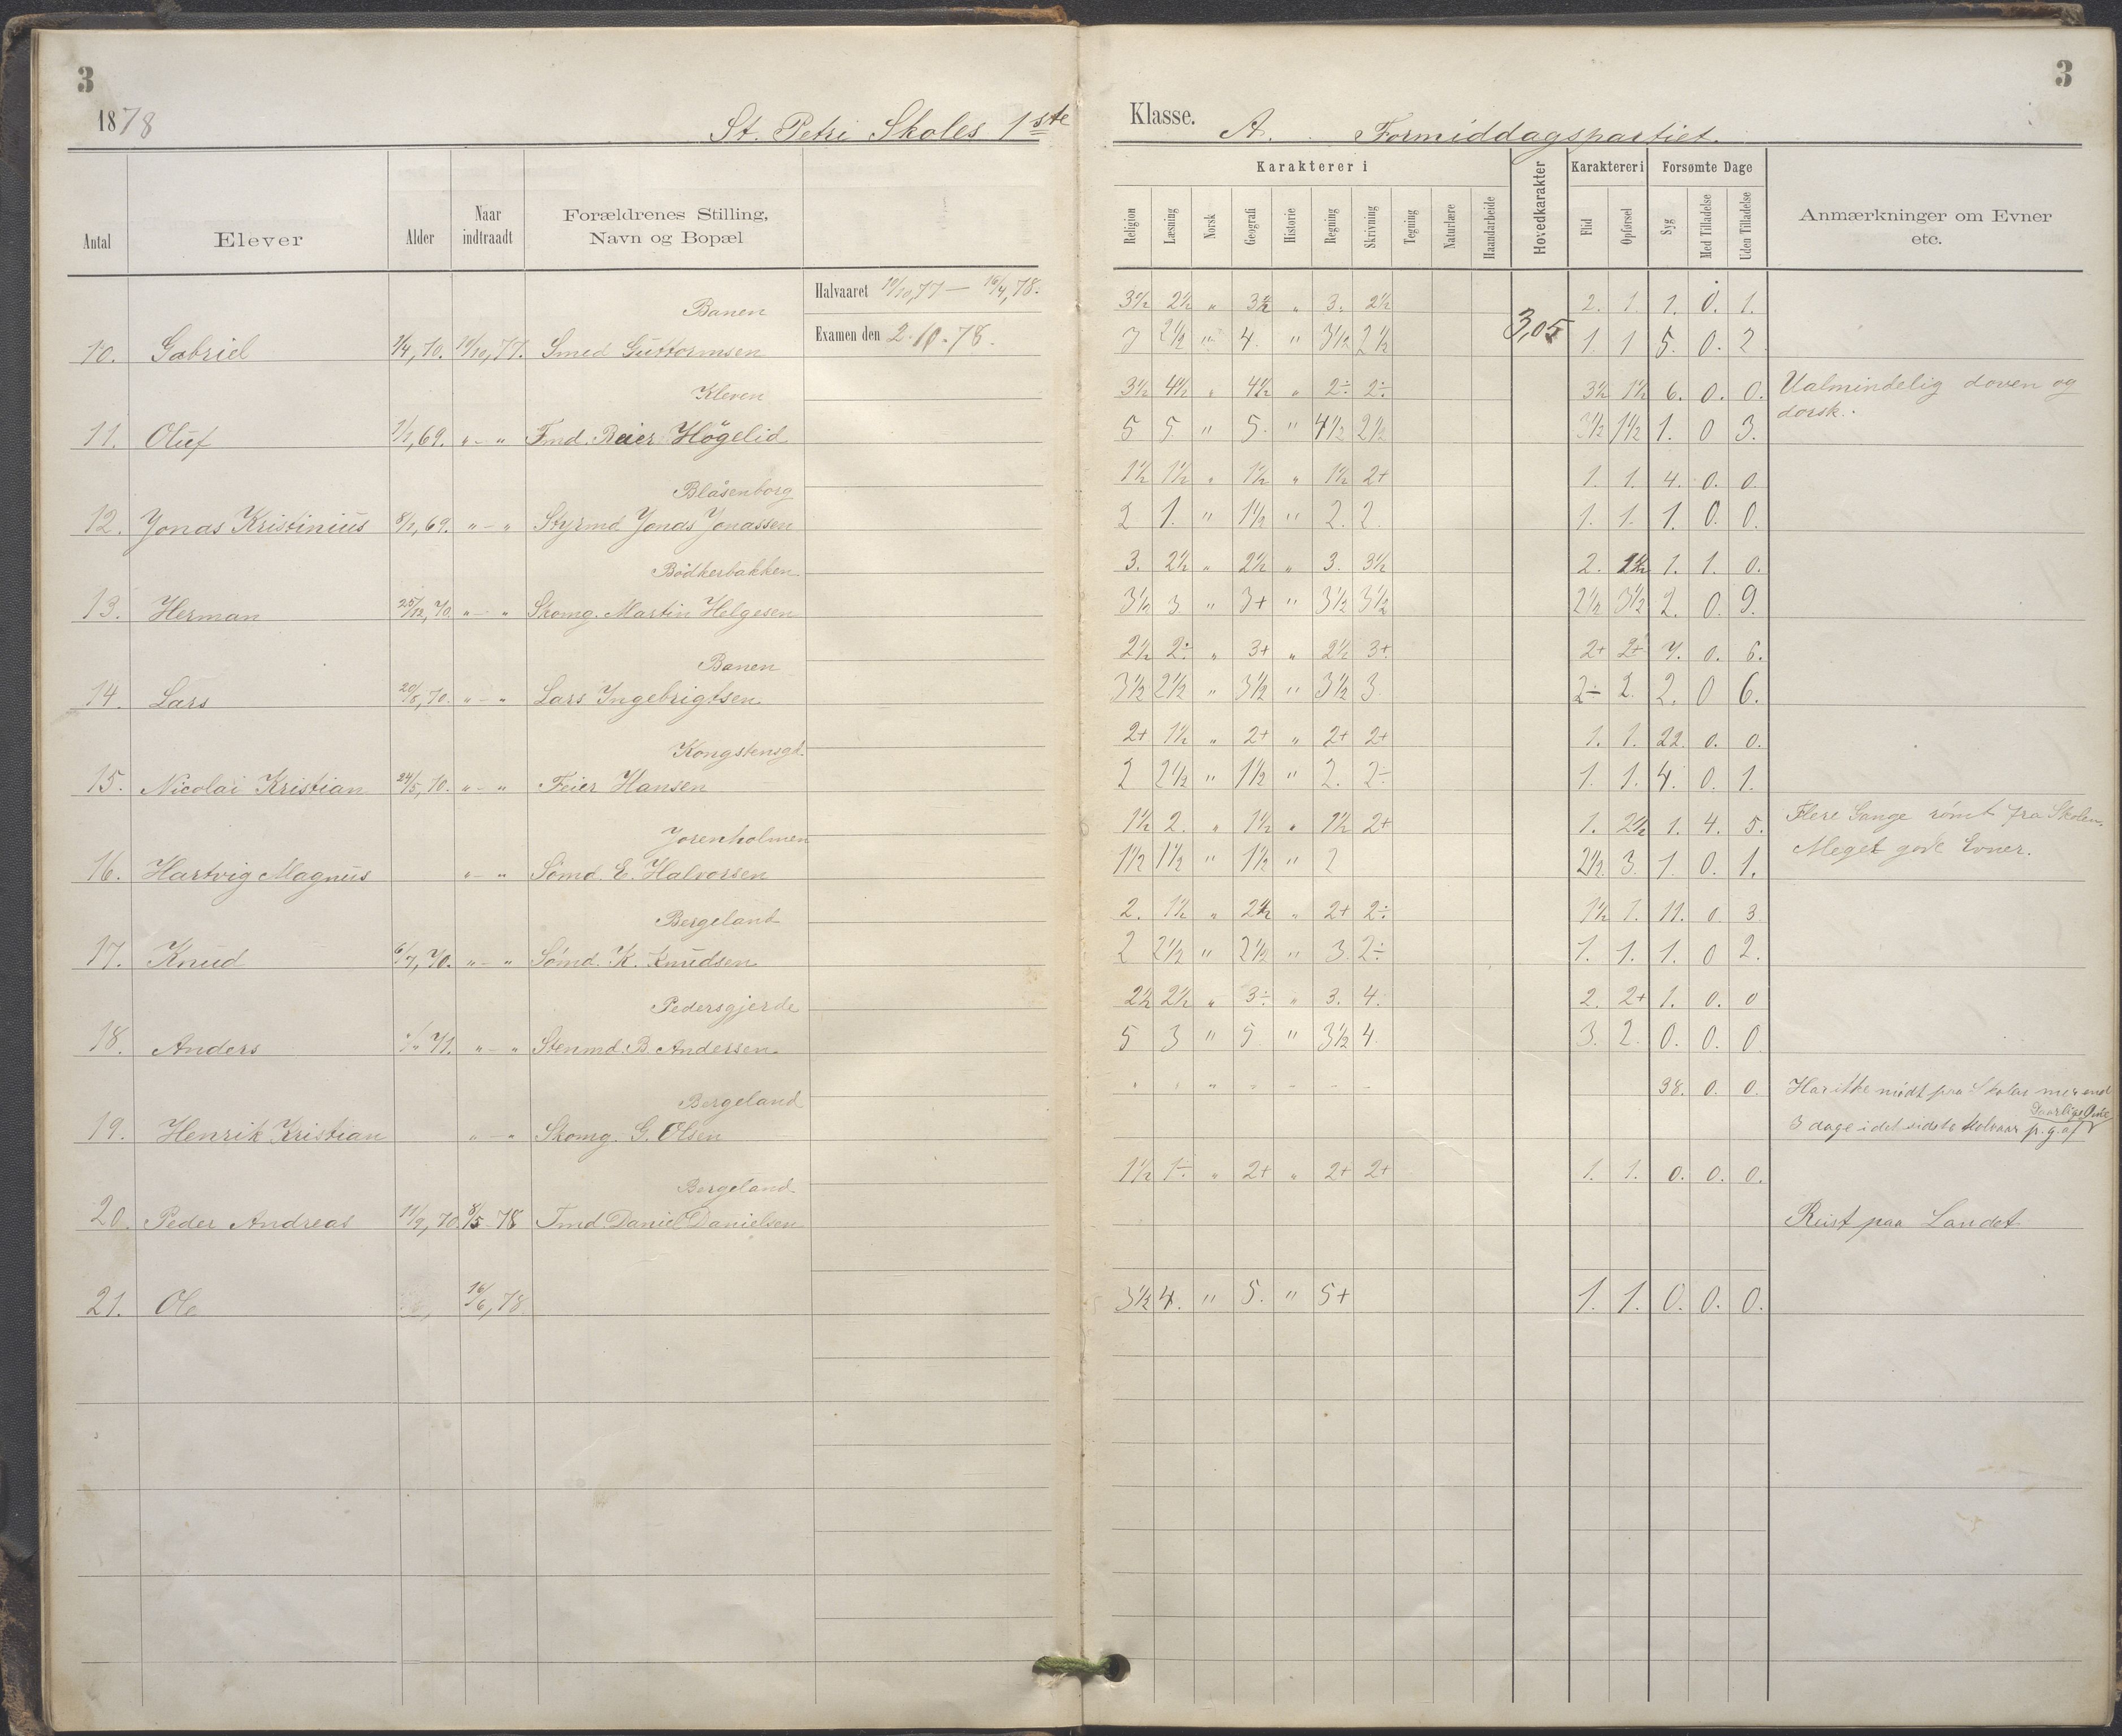 3
3
1878
St. Petri Skoles 1ste Klasse. A. Formiddagspartiet.
Antal Elever Alder Naar indtraadt Forældrenes Stilling, Navn og Bopæl
Karakterer i Hovedkarakter Karakterer i Forsømte Dage Anmærkninger om Evner etc.
Religion Læsning Norsk Geografi Historie Regning Skrivning Tegning Naturlære Haandarbeide Flid Opførsel Syg Med Tilladelse Uden Tilladelse
Banen Halvaaret 19/10,77 — 16/4,78. 3½ 2½ " 3½ " 3. 2½ 2. 1. 1. 0. 1.
10. Gabriel 1/4,70. 19/10,77. Smed Guttormsen Examen den 2.10.78. 3 2½ " 4. " 3½ 2½ 3,05 1. 1 5. 0. 2
Kleven 3½ 4½ " 4½ " 2÷ 2÷ 3½ 1½ 6. 0. 0. Ualmindelig doven og
11. Oluf 1/1,69. "-" Fmd. Reier Högelid 5 5 " 5. " 4½ 2½ 3½ 1½ 1. 0 3. dorsk.
Blåsenborg 1½ 1½ " 1½ " 1½ 2+ 1. 1. 4. 0. 0.
12. Jonas Kristinius 8/1,69. "-" Styrmd Jonas Jonassen 2 1. " 1½ " 2. 2. 1. 1. 1. 0. 0.
Bödkerbakken 3. 2½ " 2½ " 3. 3½ 2. 1. 1. 0.
13. Herman 25/12,70. "-" Skomg. Martin Helgesen 3½ 3 " 3+ " 3½ 3½ 2½ 3½ 2. 0. 9.
Banen 2½ 2÷ " 3+ " 2½ 3+ 2+ 2+ 7. 0. 6.
14. Lars 20/8,70. "-" Lars Ingebrigtsen. 3½ 2½ " 3½ " 3½ 3. 2÷ 2. 2. 0 6.
Kongstensgd. 2+ 1½ " 2+ " 2+ 2+ 1. 1. 22. 0. 0.
15. Nicolai Kristian 24/5,70. "-" Feier Hansen 2 2½ " 1½ " 2. 2÷ 1. 1. 4. 0. 1.
Jorenholmen 1½ 2. " 1½ " 1½ 2+ 1. 2½ 1. 4. 5. Flere Gange römt fra Skolen.
16. Hartvig Magnus "-" Sömd. E. Halvorsen 1½ 1½ " 1½ " 2 2½ 3. 1. 0. 1. Meget gode Evner.
Bergeland 2. 1½ " 2½ " 2+ 2÷ 1½ 1. 11. 0. 3
17. Knud 6/7,70. "-" Sömd. K. Knudsen 2 2½ " 2½ " 3. 2÷ 1. 1. 1. 0 2.
Pedersgjerde 2½ 2½ " 3÷ " 3. 4. 2. 2+ 1. 0. 0
18. Anders 71. "-" Stenmd. B. Andersen 5 3 " 5 " 3½ 4. 3. 2. 0. 0. 0
Bergeland 38. 0. 0. Har ikke mödt paa Skolen mer end
19. Henrik Kristian "-" Skomg. G. Olsen 3 dage i det sidste Halvaar p.g.af daarlige Öine
Bergeland 1½ 1÷ " 2+ " 2+ 2+ 1. 1. 0. 0. 0.
20. Peder Andreas 11/9,70. 8/5-78 Tmd. Daniel Danielsen Reist paa Landet
21. Ole 16/6,78 3½ 4. " 5. " 5+ 1. 1. 0. 0. 0.